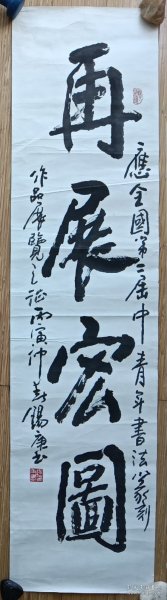 再展宏圖
應全國第二屆中青年書法篆刻
作品展覽之征 丙寅仲春 錫庚書